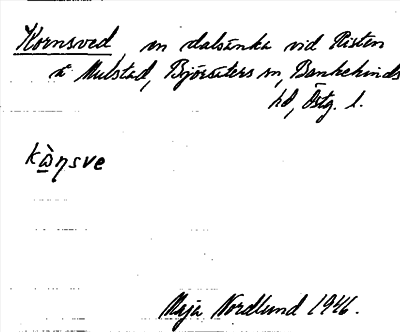 Kornsved, en dalsänka vid Risten
å Mulstad, Björsäters sn, Bankekinds
hd, Östg. l.
kὼ̱ηsve
Maja Nordlund 1946.